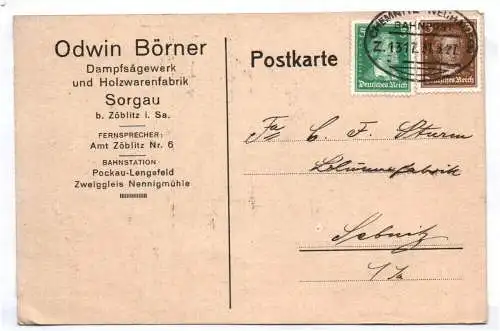 Odwin Börner
Dampfsägewerk
und Holzwarenfabrik
Sorgau
b. Zöblitz i. Sa.
FERNSPRECHER:
Amt Zöblitz Nr. 6
BAHNSTATION
Pockau-Lengefeld
Zweiggleis Nennigmühle
Postkarte
CHEMNITZ
BAHNPOST
Deutsches Reich
Deutsches Reich
Fa. C. F. Sturm
Blumenfabrik
Sebnitz
i/Sa